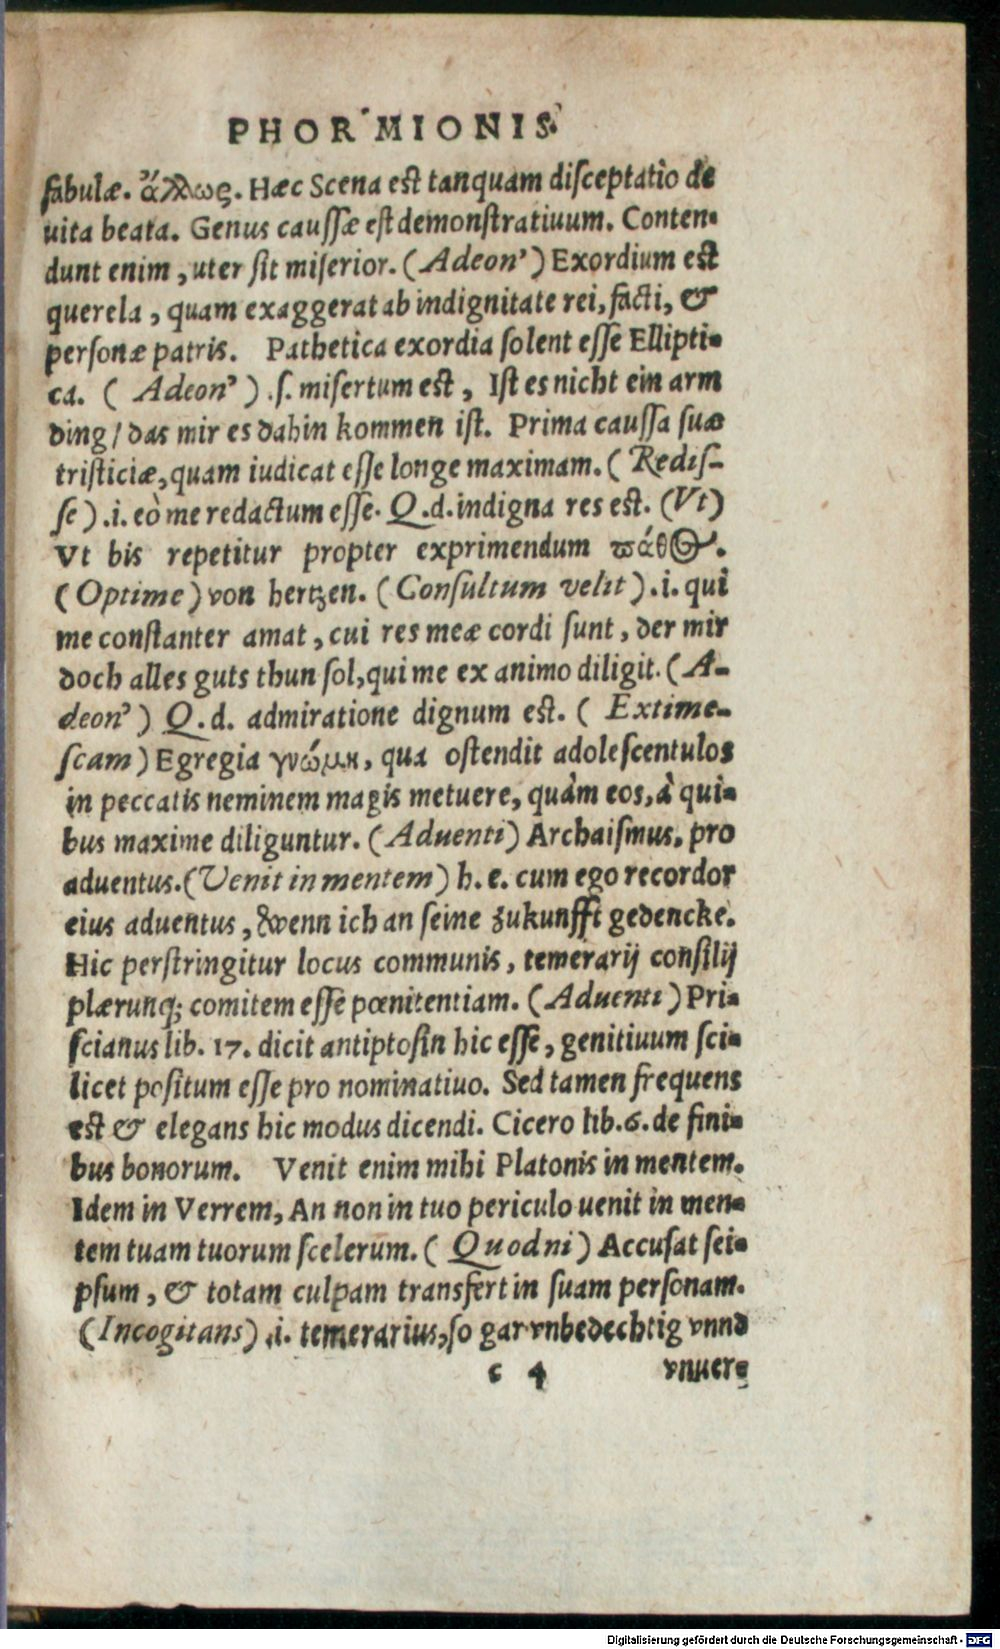 PHORMIONIS.
fabulæ. ἄλλως. Hæc Scena est tanquam disceptatio de
uita beata. Genus caussæ est demonstratiuum. Conten-
dunt enim, uter sit miserior. (Adeon') Exordium est
querela, quam exaggerat ab indignitate rei, facti, &
personæ patris. Pathetica exordia solent esse Ellipti-
ca. ( Adeon' ) .s. misertum est, Ist es nicht ein arm
ding / das mir es dahin kommen ist. Prima caussa suæ
tristiciæ, quam iudicat esse longe maximam. ( Redis-
se ) .i. eò me redactum esse. Q.d. indigna res est. (Vt)
Vt bis repetitur propter exprimendum πάθος.
(Optime) von hertzen. (Consultum velit) .i. qui
me constanter amat, cui res meæ cordi sunt, der mir
doch alles guts thun sol, qui me ex animo diligit. ( A-
deon' ) Q.d. admiratione dignum est. ( Extime-
scam) Egregia γνώμη, qua ostendit adolescentulos
in peccatis neminem magis metuere, quàm eos, à qui-
bus maxime diliguntur. (Aduenti) Archaismus, pro
aduentus. (Venit in mentem) h. e. cum ego recordor
eius aduentus, wenn ich an seine zukunfft gedencke.
Hic perstringitur locus communis, temerarij consilij
plærunq; comitem esse pœnitentiam. (Aduenti) Pri-
scianus lib. 17. dicit antiptosin hic esse, genitiuum sci-
licet positum esse pro nominatiuo. Sed tamen frequens
est & elegans hic modus dicendi. Cicero lib. 6. de fini-
bus bonorum. Venit enim mihi Platonis in mentem.
Idem in Verrem, An non in tuo periculo uenit in men-
tem tuam tuorum scelerum. ( Quodni ) Accusat sei-
psum, & totam culpam transfert in suam personam.
(Incogitans) .i. temerarius, so gar vnbedechtig vnnd
c 4 vnuer-
Digitalisierung gefördert durch die Deutsche Forschungsgemeinschaft - DFG